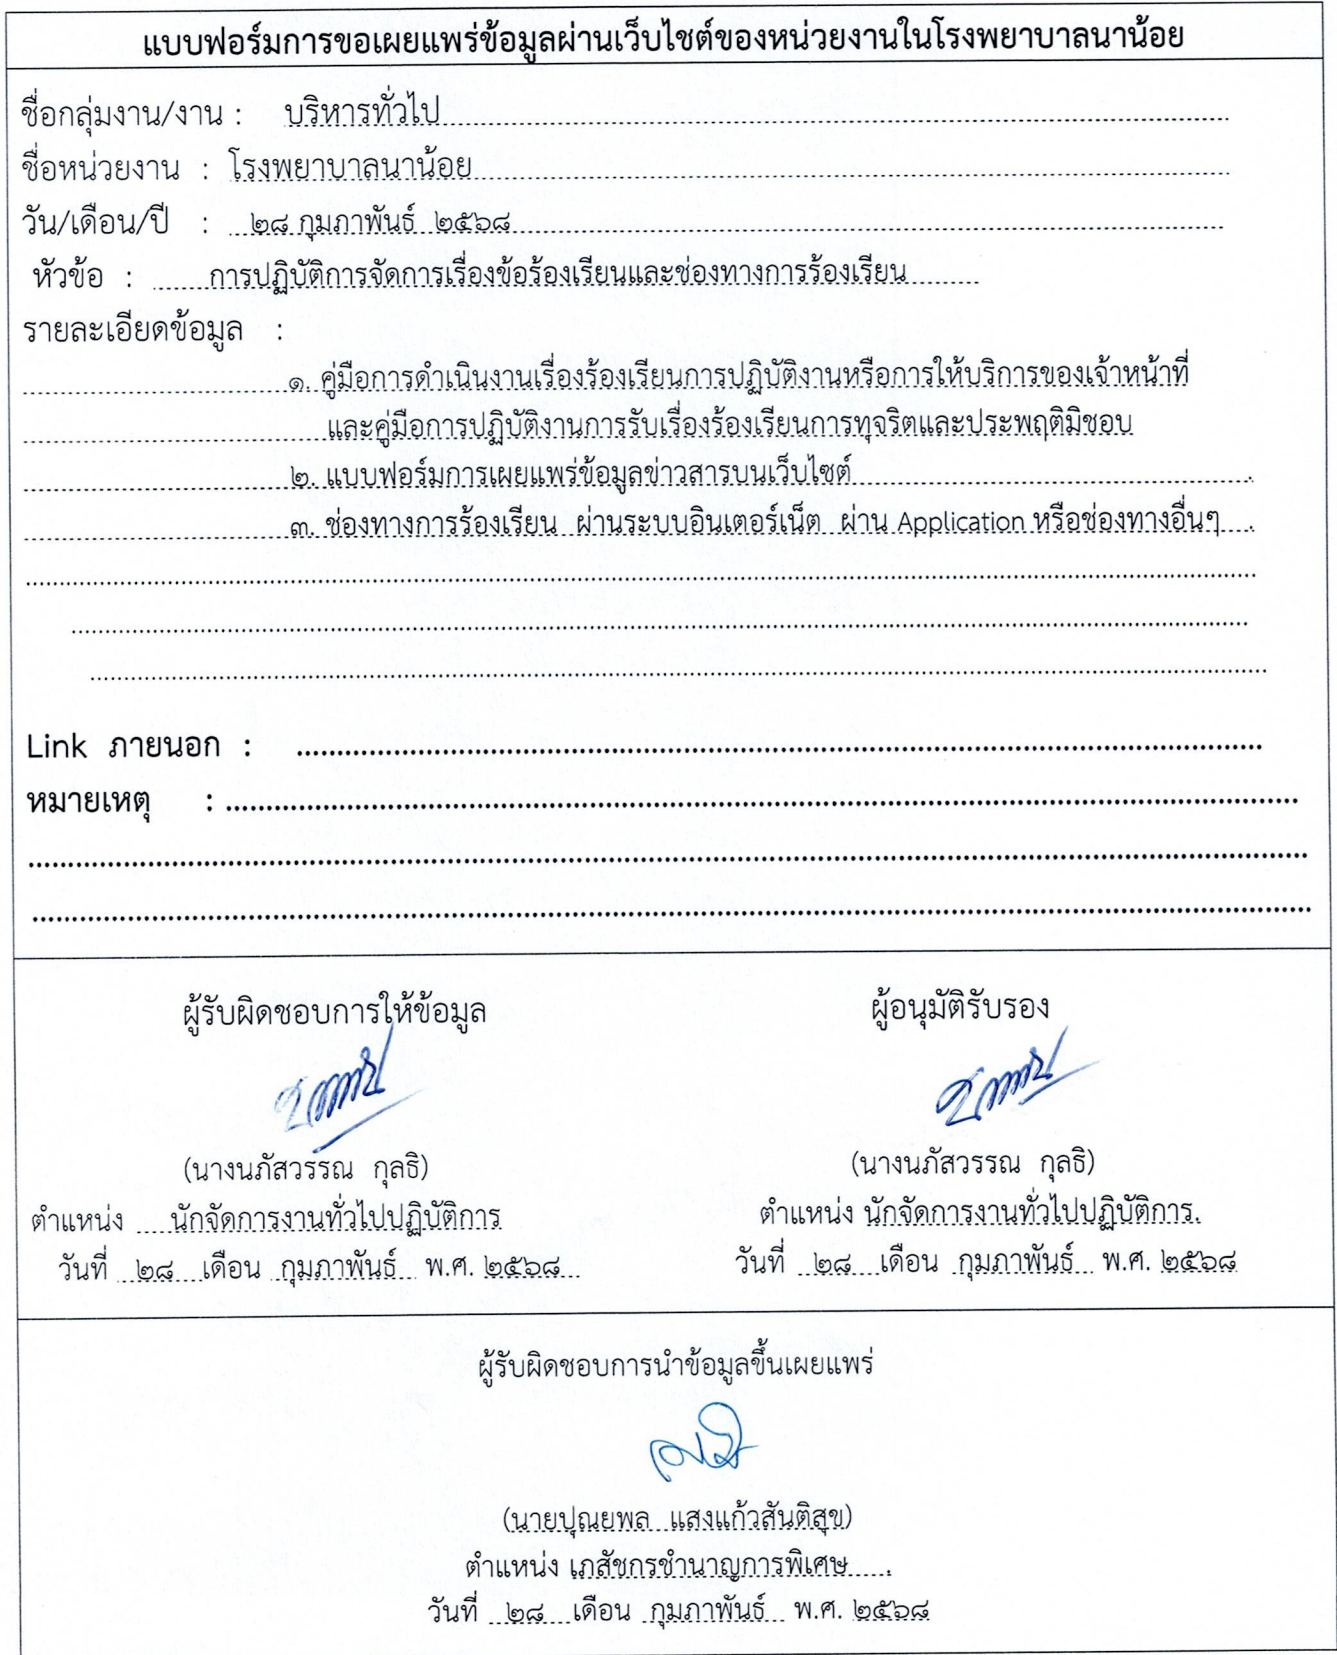 แบบฟอร์มการขอเผยแพร่ข้อมูลผ่านเว็บไซต์ของหน่วยงานในโรงพยาบาลนาน้อย
ชื่อกลุ่มงาน/งาน : บริหารทั่วไป
ชื่อหน่วยงาน : โรงพยาบาลนาน้อย
วัน/เดือน/ปี : ๒๘ กุมภาพันธ์ ๒๕๖๘
หัวข้อ : การปฏิบัติการจัดการเรื่องข้อร้องเรียนและช่องทางการร้องเรียน
รายละเอียดข้อมูล :
๑. คู่มือการดำเนินงานเรื่องร้องเรียนการปฏิบัติงานหรือการให้บริการของเจ้าหน้าที่
และคู่มือการปฏิบัติงานการรับเรื่องร้องเรียนการทุจริตและประพฤติมิชอบ
๒. แบบฟอร์มการเผยแพร่ข้อมูลข่าวสารบนเว็บไซต์
๓. ช่องทางการร้องเรียน ผ่านระบบอินเตอร์เน็ต ผ่าน Application หรือช่องทางอื่นๆ
Link ภายนอก :
หมายเหตุ :
ผู้รับผิดชอบการให้ข้อมูล ผู้อนุมัติรับรอง
(นางนภัสวรรณ กุลธิ) (นางนภัสวรรณ กุลธิ)
ตำแหน่ง นักจัดการงานทั่วไปปฏิบัติการ ตำแหน่ง นักจัดการงานทั่วไปปฏิบัติการ.
วันที่ ๒๘ เดือน กุมภาพันธ์ พ.ศ. ๒๕๖๘ วันที่ ๒๘ เดือน กุมภาพันธ์ พ.ศ. ๒๕๖๘
ผู้รับผิดชอบการนำข้อมูลขึ้นเผยแพร่
(นายปุณยพล แสงแก้วสันติสุข)
ตำแหน่ง เภสัชกรชำนาญการพิเศษ
วันที่ ๒๘ เดือน กุมภาพันธ์ พ.ศ. ๒๕๖๘